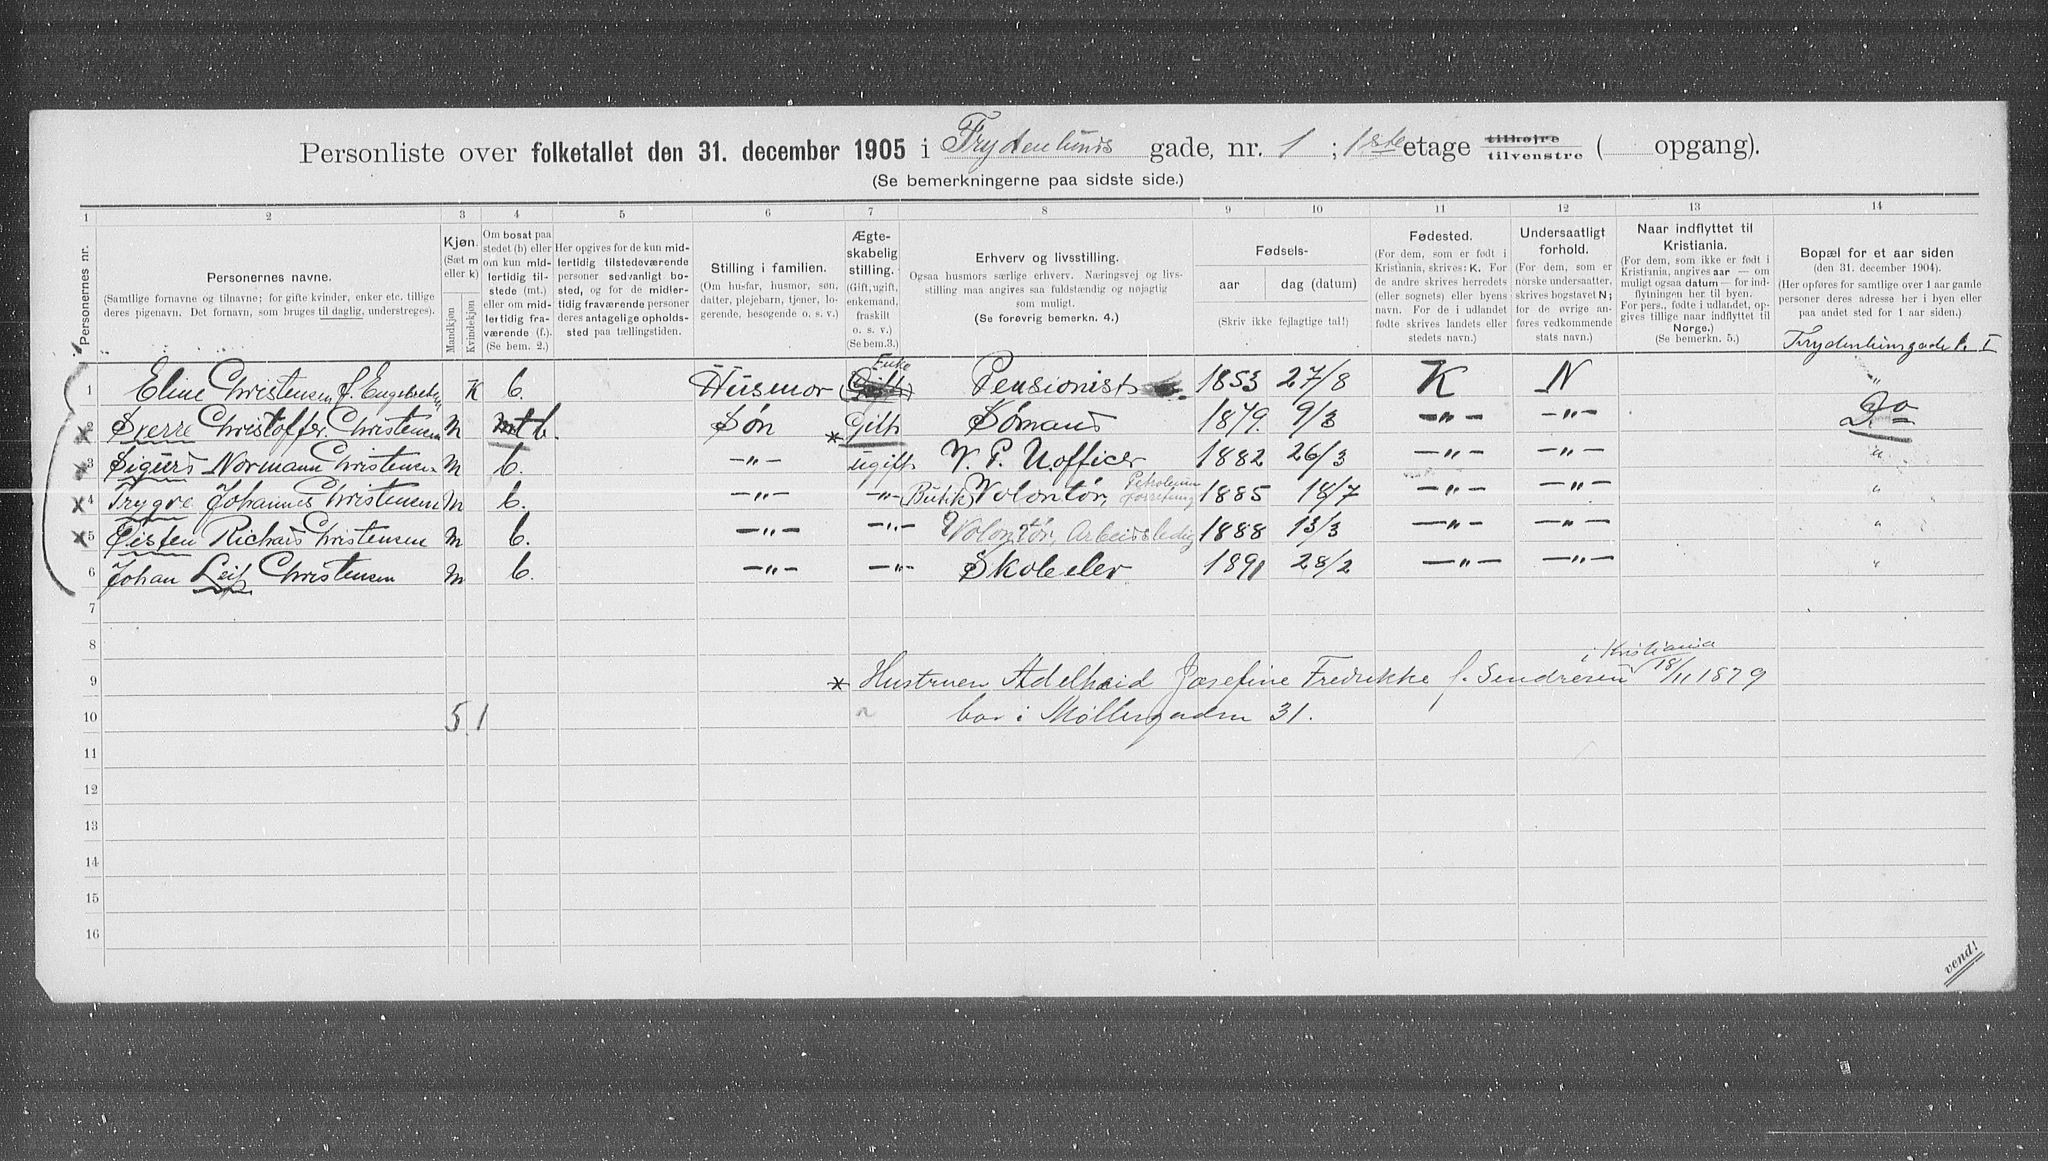 Personliste over folketallet den 31. december 1905 i Frydenlunds gade, nr. 1 ; 1ste etage tilhøjre tilvenstre ( opgang).
(Se bemerkningerne paa sidste side.)
1 2 3 4 5 6 7 8 9 10 11 12 13 14
Personernes nr.
Personernes navne.
(Samtlige fornavne og tilnavne; for gifte kvinder, enker etc. tillige
deres pigenavn. Det fornavn, som bruges til daglig, understreges).
Kjøn.
(Sæt m
eller k)
Mandkjøn
Kvindekjøn
Om bosat paa
stedet (b) eller
om kun mid-
lertidig til-
stede (mt.)
eller om mid-
lertidig fra-
værende (f.).
(Se bem. 2.)
Her opgives for de kun mid-
lertidig tilstedeværende
personer sedvanligt bo-
sted, og for de midler-
tidig fraværende personer
deres antagelige opholds-
sted paa tællingstiden.
Stilling i familien.
(Om husfar, husmor, søn,
datter, plejebarn, tjener, lo-
gerende, besøgende o. s. v.)
Ægte-
skabelig
stilling.
(Gift, ugift,
enkemand,
fraskilt
o. s. v.)
(Se bem.3.)
Erhverv og livsstilling.
Ogsaa husmors særlige erhverv. Næringsvej og livs-
stilling maa angives saa fuldstændig og nøjagtig
som muligt.
(Se forøvrig bemerkn. 4.)
Fødsels-
aar dag (datum)
(Skriv ikke fejlagtige tal!)
Fødested.
(For dem, som er født i
Kristiania, skrives: K. For
de andre skrives herredets
(eller sognets) eller byens
navn. For de i udlandet
fødte skrives landets eller
stedets navn.)
Undersaatligt
forhold.
(For dem, som er
norske undersaatter,
skrives bogstavet N;
for de øvrige an-
føres vedkommende
stats navn.)
Naar indflyttet til
Kristiania.
(For dem, som ikke er født i
Kristiania, angives aar — om
muligt ogsaa datum — for ind-
flytningen her til byen.
For pers., fødte i udlandet, op-
gives tillige naar indflyttet til
Norge.)
(Se bemerkn. 5.)
Bopæl for et aar siden
(den 31. december 1904).
(Her opføres for samtlige over 1 aar gamle
personer deres adresse her i byen eller
paa andet sted for 1 aar siden.)
Frydenlunsgade 1. I
Enke
1 Eline Christensen f. Engebretsen K b. Husmor (Gift) Pensionist 1853 27/8 K N "
x 2 Sverre Christoffer Christensen M mt b. Søn * Gift Sømand 1879. 9/3 —"— —"— Do
x 3 Sigurd Normann Christensen M b. —"— ugift V. P. U.officer 1882 26/3 —"— —"— "
x 4 Trygve Johannes Christensen M b. —"— —"— (Butik) Volontør, Petroleum forretning 1885 18/7 —"— —"— "
x 5 Øisten Richard Christensen M b. —"— —"— Volontør, Arbeidsledig 1888 13/3 —"— —"— "
6 Johan Leif Christensen M b. —"— —"— Skoleelev. 1891 28/2 —"— —"— "
7
8
i Kristiania
9 * Hustruen Adelheid Josefine Fredrikke f. 18/11 1879
10 5 1 bor i Møllergaden 31.
11
12
13
14
15
16
vend!